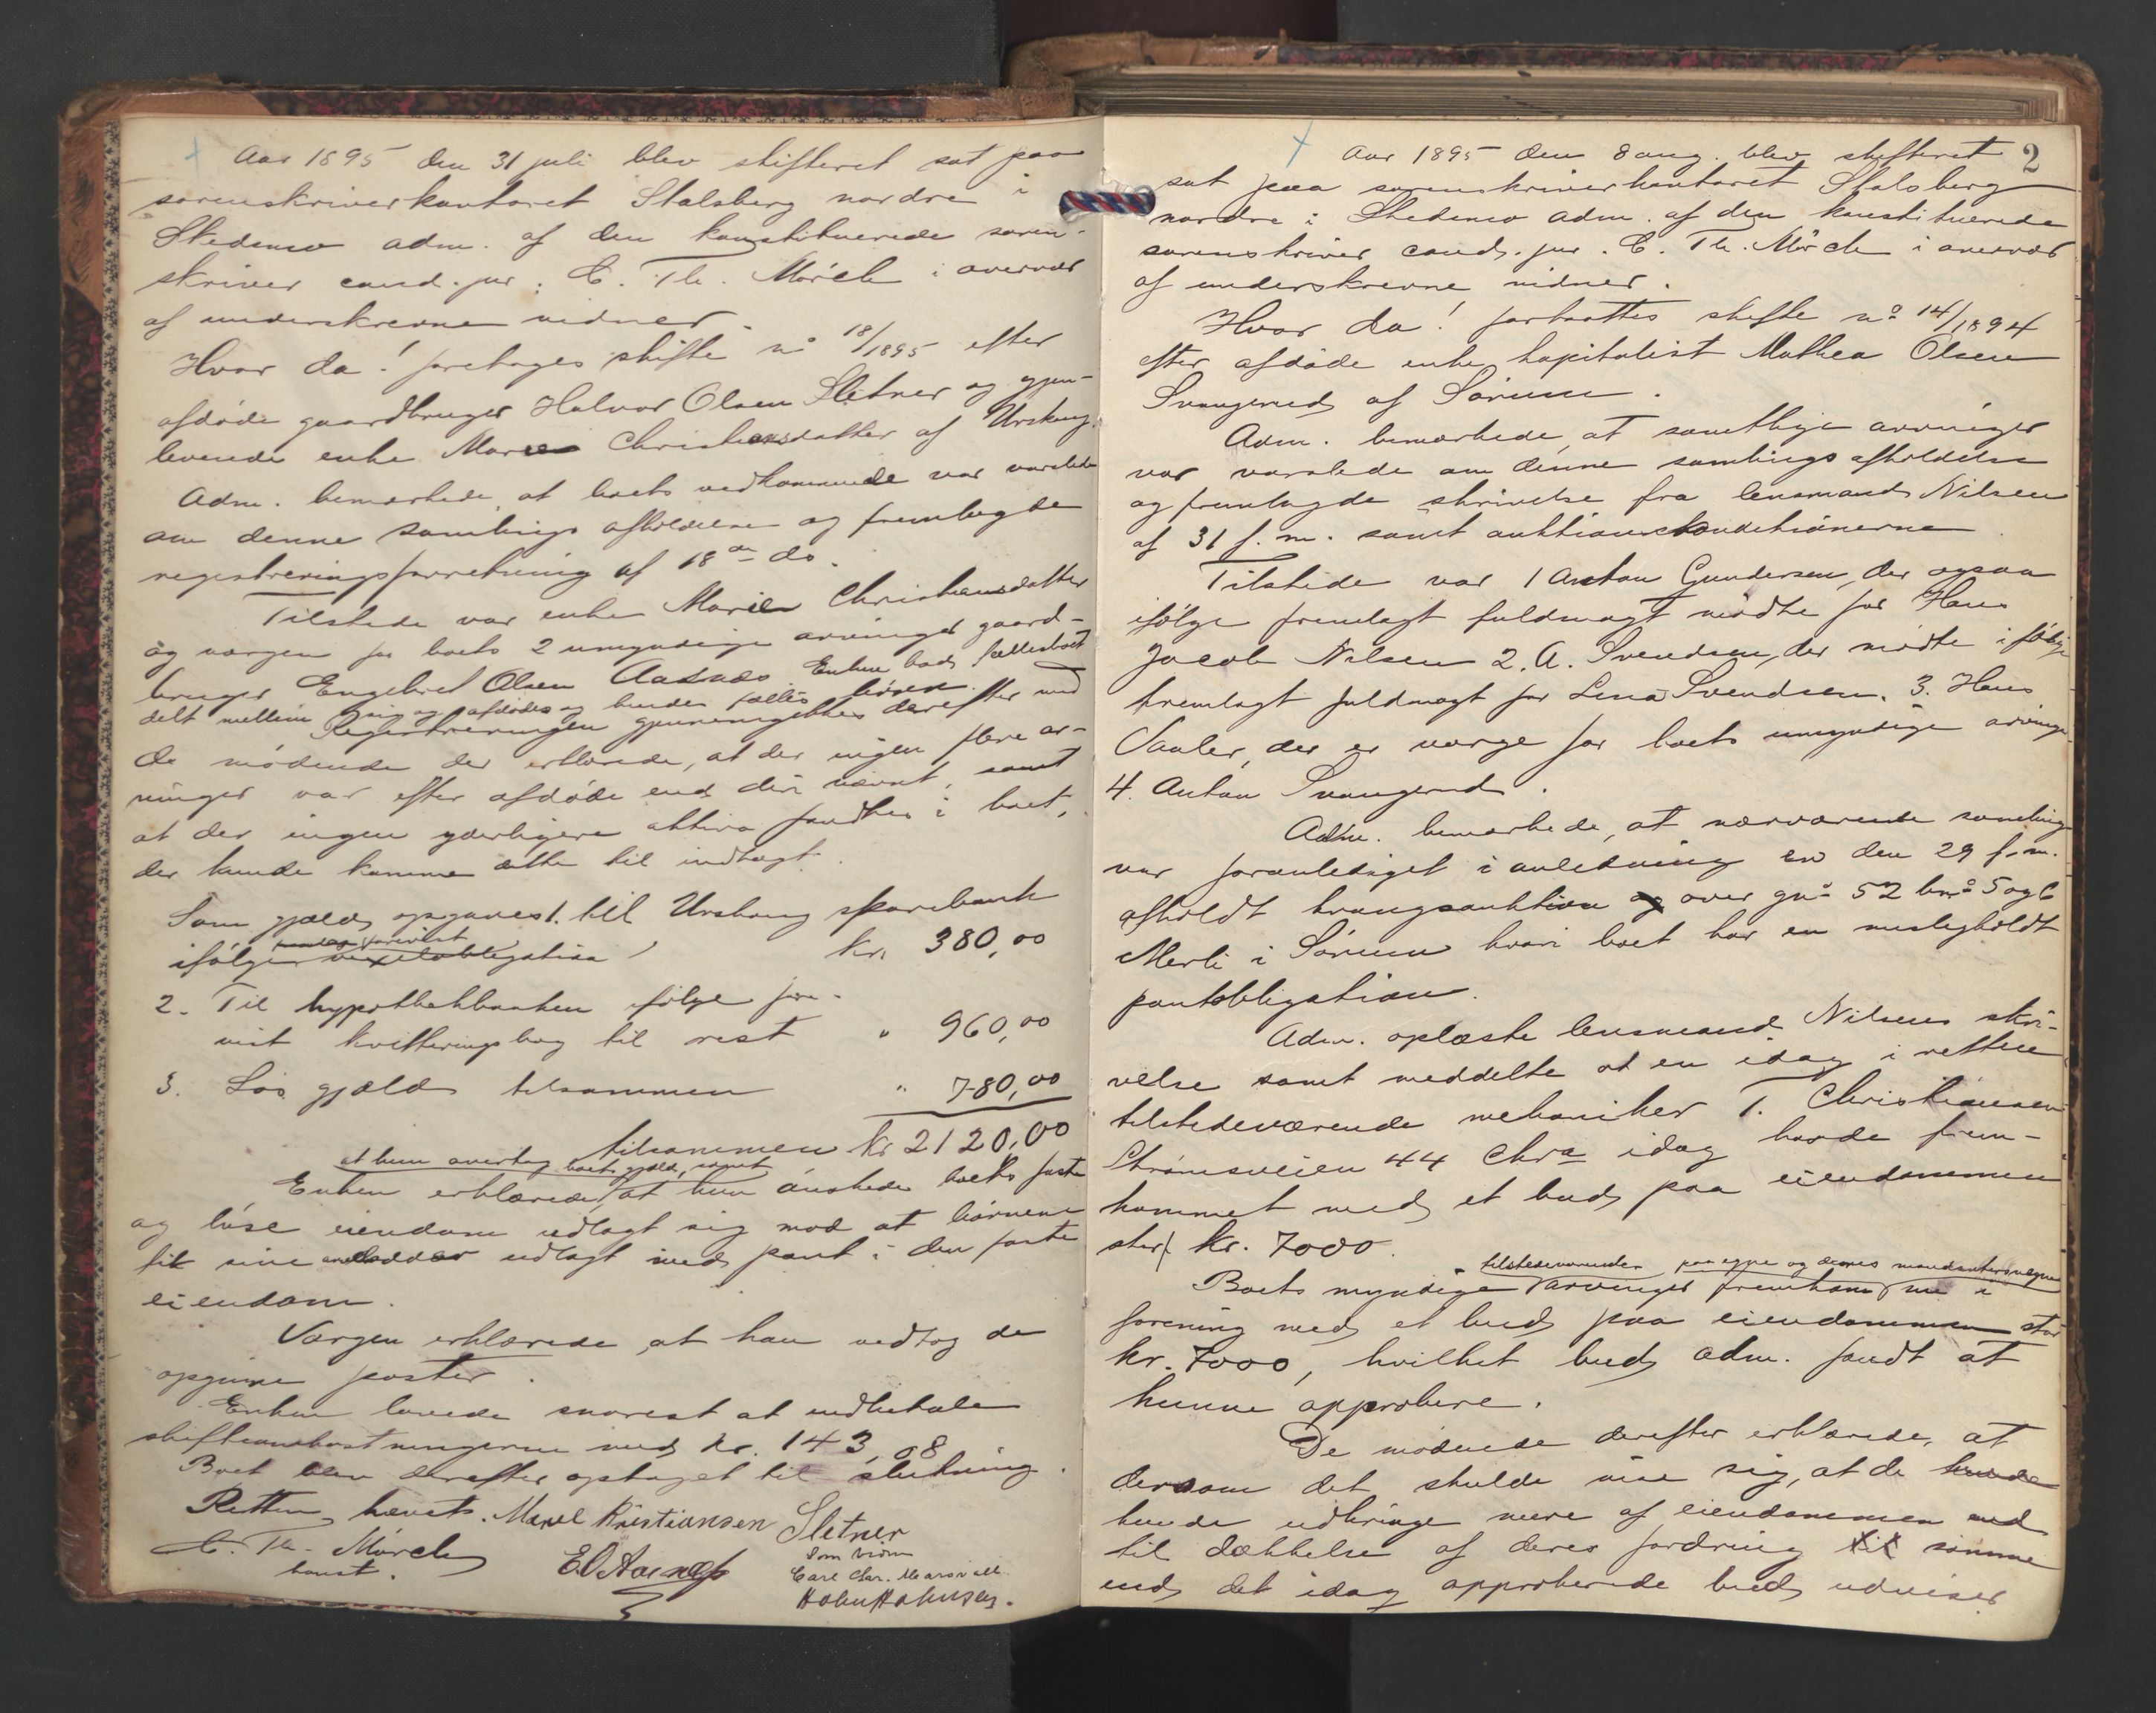 Aar 1895 den 31 juli blev skifteret sat paa
sorenskriverkontoret Stalsberg nordre i
Skedsmo adm. af den konstituerede soren-
skriver cand. jur. C. Th. Mörch i overvær
af underskrevne vidner.
Hvor da! foretoges skifte no 18/1895 efter
afdøde gaardbruger Halvor Olsen Sletner og gjen-
levende enke Maren Christiansdatter af Urskoug.
Adm. bemærkede, at boets vedkommende var varslede
om denne samlings afholdelse og fremlagde
registreringsforretning af 18de ds.
Tilstede var enke Maren Christiansdatter
og vergen for boets 2 umyndige arvinger gaard-
bruger Engebret Olsen Aasnæs. Enken bad fællesboet
delt mellem sig og afdødes og hendes fælles børn.
Registreringen gjennemgikkes derefter med
de mødende der erklærede, at der ingen flere ar-
vinger var efter afdøde end deri nævnt, samt
at der ingen yderligere aktiva fandtes i boet,
der kunde komme dette til indtægt.
Som gjæld opgaves 1. til Urskoug sparebank
ifølge vexelobligation kr. 380,00
2. Til hypothekbanken ifølge fore-
vist kvitteringsbog til rest " 960,00
3. Løs gjæld tilsammen " 780,00
tilsammen kr 2120,00
at hun overtog boets gjæld, samt
Enken erklærede, at hun ønskede boets faste
og løse eiendom udlagt sig mod at børnene
fik sine arvelodder udlagt med pant i den faste
eiendom.
Vergen erklærede, at han vedtog de
opgivne poster.
Enken lovede snarest at indbetale
skifteomkostningerne med kr. 143,08
Boet blev derefter optaget til slutning.
Retten hævet. Marel Kristiansen Sletner
C. Th. Mörch E O Aasnæs Som vidne
konst. Carl Chr.
2
Aar 1895 den 8 aug. blev skifteret
sat paa sorenskriverkontoret Stalsberg
nordre i Skedsmo adm. af den konstituerede
sorenskriver cand. jur. C. Th. Mörch i overvær
af underskrevne vidner.
Hvor da! fortsattes skifte no 14/1894
efter afdøde enke, kapitalist Mathea Olsen
Svangerud af Sørum.
Adm. bemærkede, at samtlige arvinger
var varslede om denne samlings afholdelse
og fremlagde skrivelse fra lensmand Nilsen
af 31 f. m. samt auktionskonditionerne
Tilstede var 1 Anton Gundersen, der ogsaa
ifølge fremlagt fuldmagt mødte for Hans
Jacob Nilsen 2. A. Svendsen, der mødte ifølge
fremlagt fuldmagt for Lina Svendsen. 3. Hans
Vaaler, der er verge for boets umyndige arvinge
4. Anton Svangerud.
Adm. bemærkede, at nærværende samling
var foranlediget i anledning en den 29 f. m.
afholdt tvangsauktion og over gno 52 bno 5 og 6
Merli i Sørum hvori boet har en misligholdt
pantobligation.
Adm. oplæste lensmand Nilsens skri-
velse samt meddelte at en idag i retten
tilstedeværende mekaniker T. Christiansen
Strømsveien 44 Chra idag havde frem-
kommet med et bud paa eiendommen
stort kr. 7000.
tilstedeværende paa egne og deres mandanters vegne
Boets myndige arvinger fremkom nu i
forening med et bud paa eiendommen stor
kr. 7000, hvilket bud adm. fandt at
kunne approbere.
De mødende derefter erklærede, at
dersom det skulde vise sig, at de kunde
kunde udbringe mere af eiendommen end
til dækkelse af deres fordring til samme
end det idag approberede bud udviser